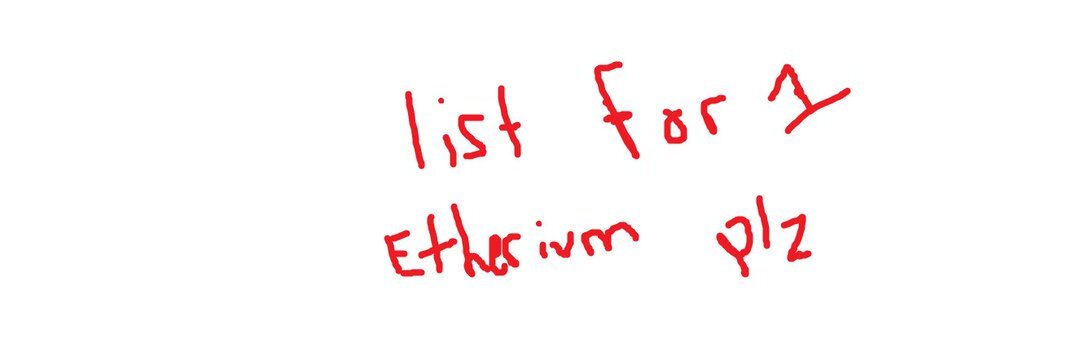 list for 1
Etherium plz